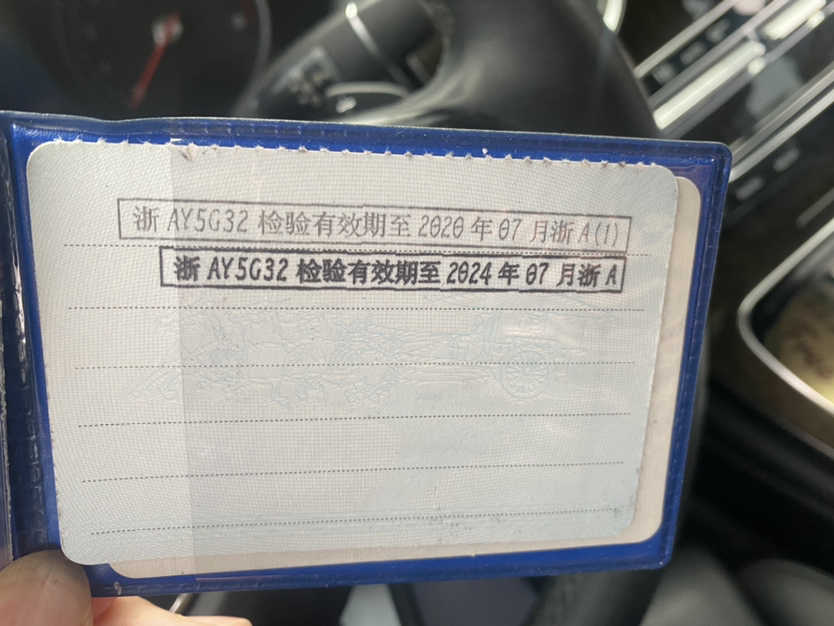 浙 AY5G32 检验有效期至 2020 年 07 月浙 A(1)
浙 AY5G32 检验有效期至 2024 年 07 月浙 A